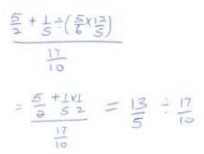 5/2 + 1/5 ÷ (5/6 × 12/5)
17/10
= 5/2 + 1/5 × 1/2
17/10
= 13/5 ÷ 17/10